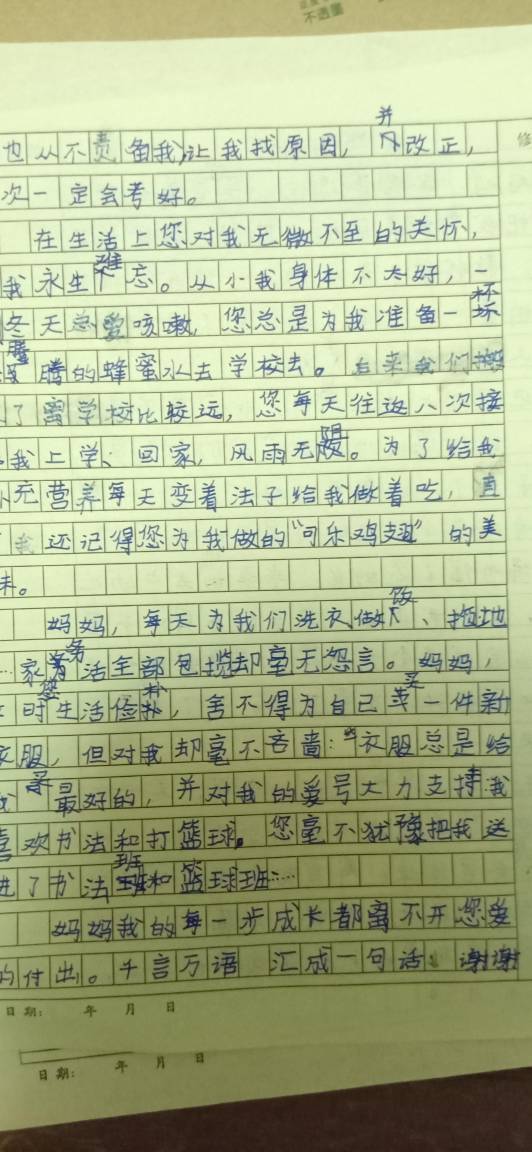 不透量
修
也从不责备我,让我找原因,并改正,
次一定会考好。
在生活上您对我无微不至的关怀,
我永生难忘。从小我身体不太好,一
冬天总爱咳嗽,您总是为我准备一杯
腾腾的蜂蜜水去学校去。后来我们搬
了离学校比较远,您每天往返八次接
我上学、回家,风雨无阻。为了给我
补充营养每天变着法子给我做着吃,直
我还记得您为我做的“可乐鸡翅”的美
味。
妈妈,每天为我们洗衣做饭、拖地
…家务活全部包揽却毫无怨言。妈妈,
时您生活俭朴,舍不得为自己买一件新
衣服,但对我却毫不吝啬:衣服总是给
我买最好的,并对我的爱号大力支持:我
喜欢书法和打篮球。您毫不犹豫把我送
进了书法班和篮球班…
妈妈我的每一步成长都离不开您爱
的付出。千言万语 汇成一句话:谢谢
日期: 年 月 日
日期: 年 月 日